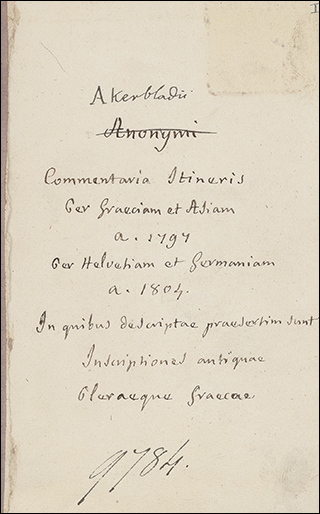 I
Akerbladii
Anonymi
Commentaria Itineris
Per Graeciam et Asiam
a. 1797
Per Helvetiam et Germaniam
a. 1804.
In quibus descriptae praesertim sunt
Inscriptiones antiquae
Pleraeque Graecae
9784.